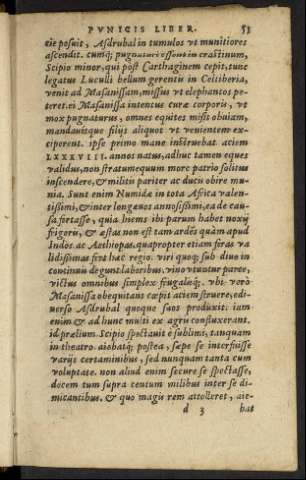 PVNICIS LIBER. 53
cie posuit, Asdrubal in tumulos vt munitiores
ascendit. cumq; pugnaturi essent in crastinum,
Scipio minor, qui post Carthaginem cepit, tunc
legatus Luculli bellum gerentis in Celtiberia,
venit ad Masanissam, missus vt elephantos pe-
teret. ei Masanissa intentus curæ corporis, vt
mox pugnaturus, omnes equites misit obuiam,
mandauitque filijs aliquot vt venientem ex-
ciperent. ipse primo mane instruebat aciem
LXXXVIII. annos natus, adhuc tamen eques
validus, non stratum equum more patrio solitus
inscendere, & militis pariter ac ducis obire mu-
nia. Sunt enim Numidæ in tota Africa valen-
tissimi, & inter longæuos annosissimi, ea de cau-
sa fortasse, quia hiems ibi parum habet noxij
frigoris, & æstas non est tam ardēs quàm apud
Indos ac Aethiopas. quapropter etiam feras va
lidissimas fert hæc regio. viri quoq; sub diuo in
continuis degunt laboribus. vino vtuntur parce,
victus omnibus simplex frugalisq́;. vbi verò
Masanissa obequitans cœpit aciem struere, ed-
uerso Asdrubal quoque suos produxit. iam
enim & ad hunc multi ex agris confluxerant.
id prælium Scipio spectauit è sublimi, tanquam
in theatro. aiebatq́; postea, sæpe se interfuisse
varijs certaminibus, sed nunquam tanta cum
voluptate. non aliud enim secure se spectasse,
docem tum supra centum milibus inter se di-
micantibus. & quo magis rem attolleret, aie-
d 3 bat